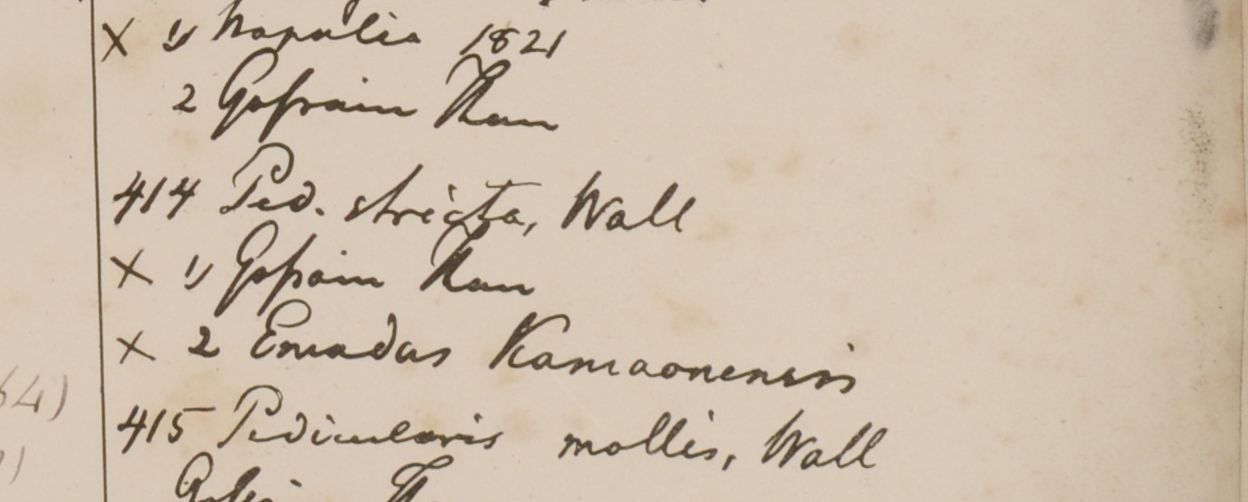 × 1) Napalia 1821
2 Gosrain Than
414 Ped. stricta, Wall
× 1) Gosain Than
× 2 Emadus Kamaonensis
415 Pedicularis mollis, Wall
64)